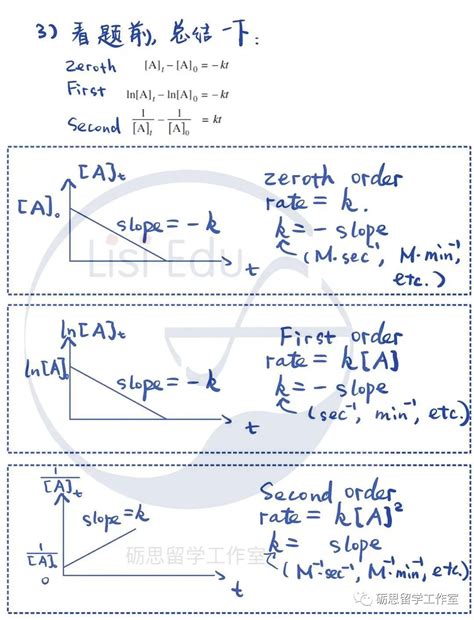 3) 看题前, 总结一下:
zeroth [A]t − [A]0 = −kt
First ln[A]t − ln[A]0 = −kt
Second 1/[A]t − 1/[A]0 = kt
[A]t
[A]0
slope = −k
t
zeroth order
rate = k.
k = − slope
(M·sec⁻¹, M·min⁻¹,
etc.)
Lisi Edu
ln[A]t
ln[A]0
slope = −k
t
First order
rate = k[A]
k = − slope
(sec⁻¹, min⁻¹, etc.)
1/[A]t
slope = k
1/[A]0
0
t
Second order
rate = k[A]²
k = slope
(M⁻¹sec⁻¹, M⁻¹min⁻¹, etc.)
砺思留学工作室
砺思留学工作室